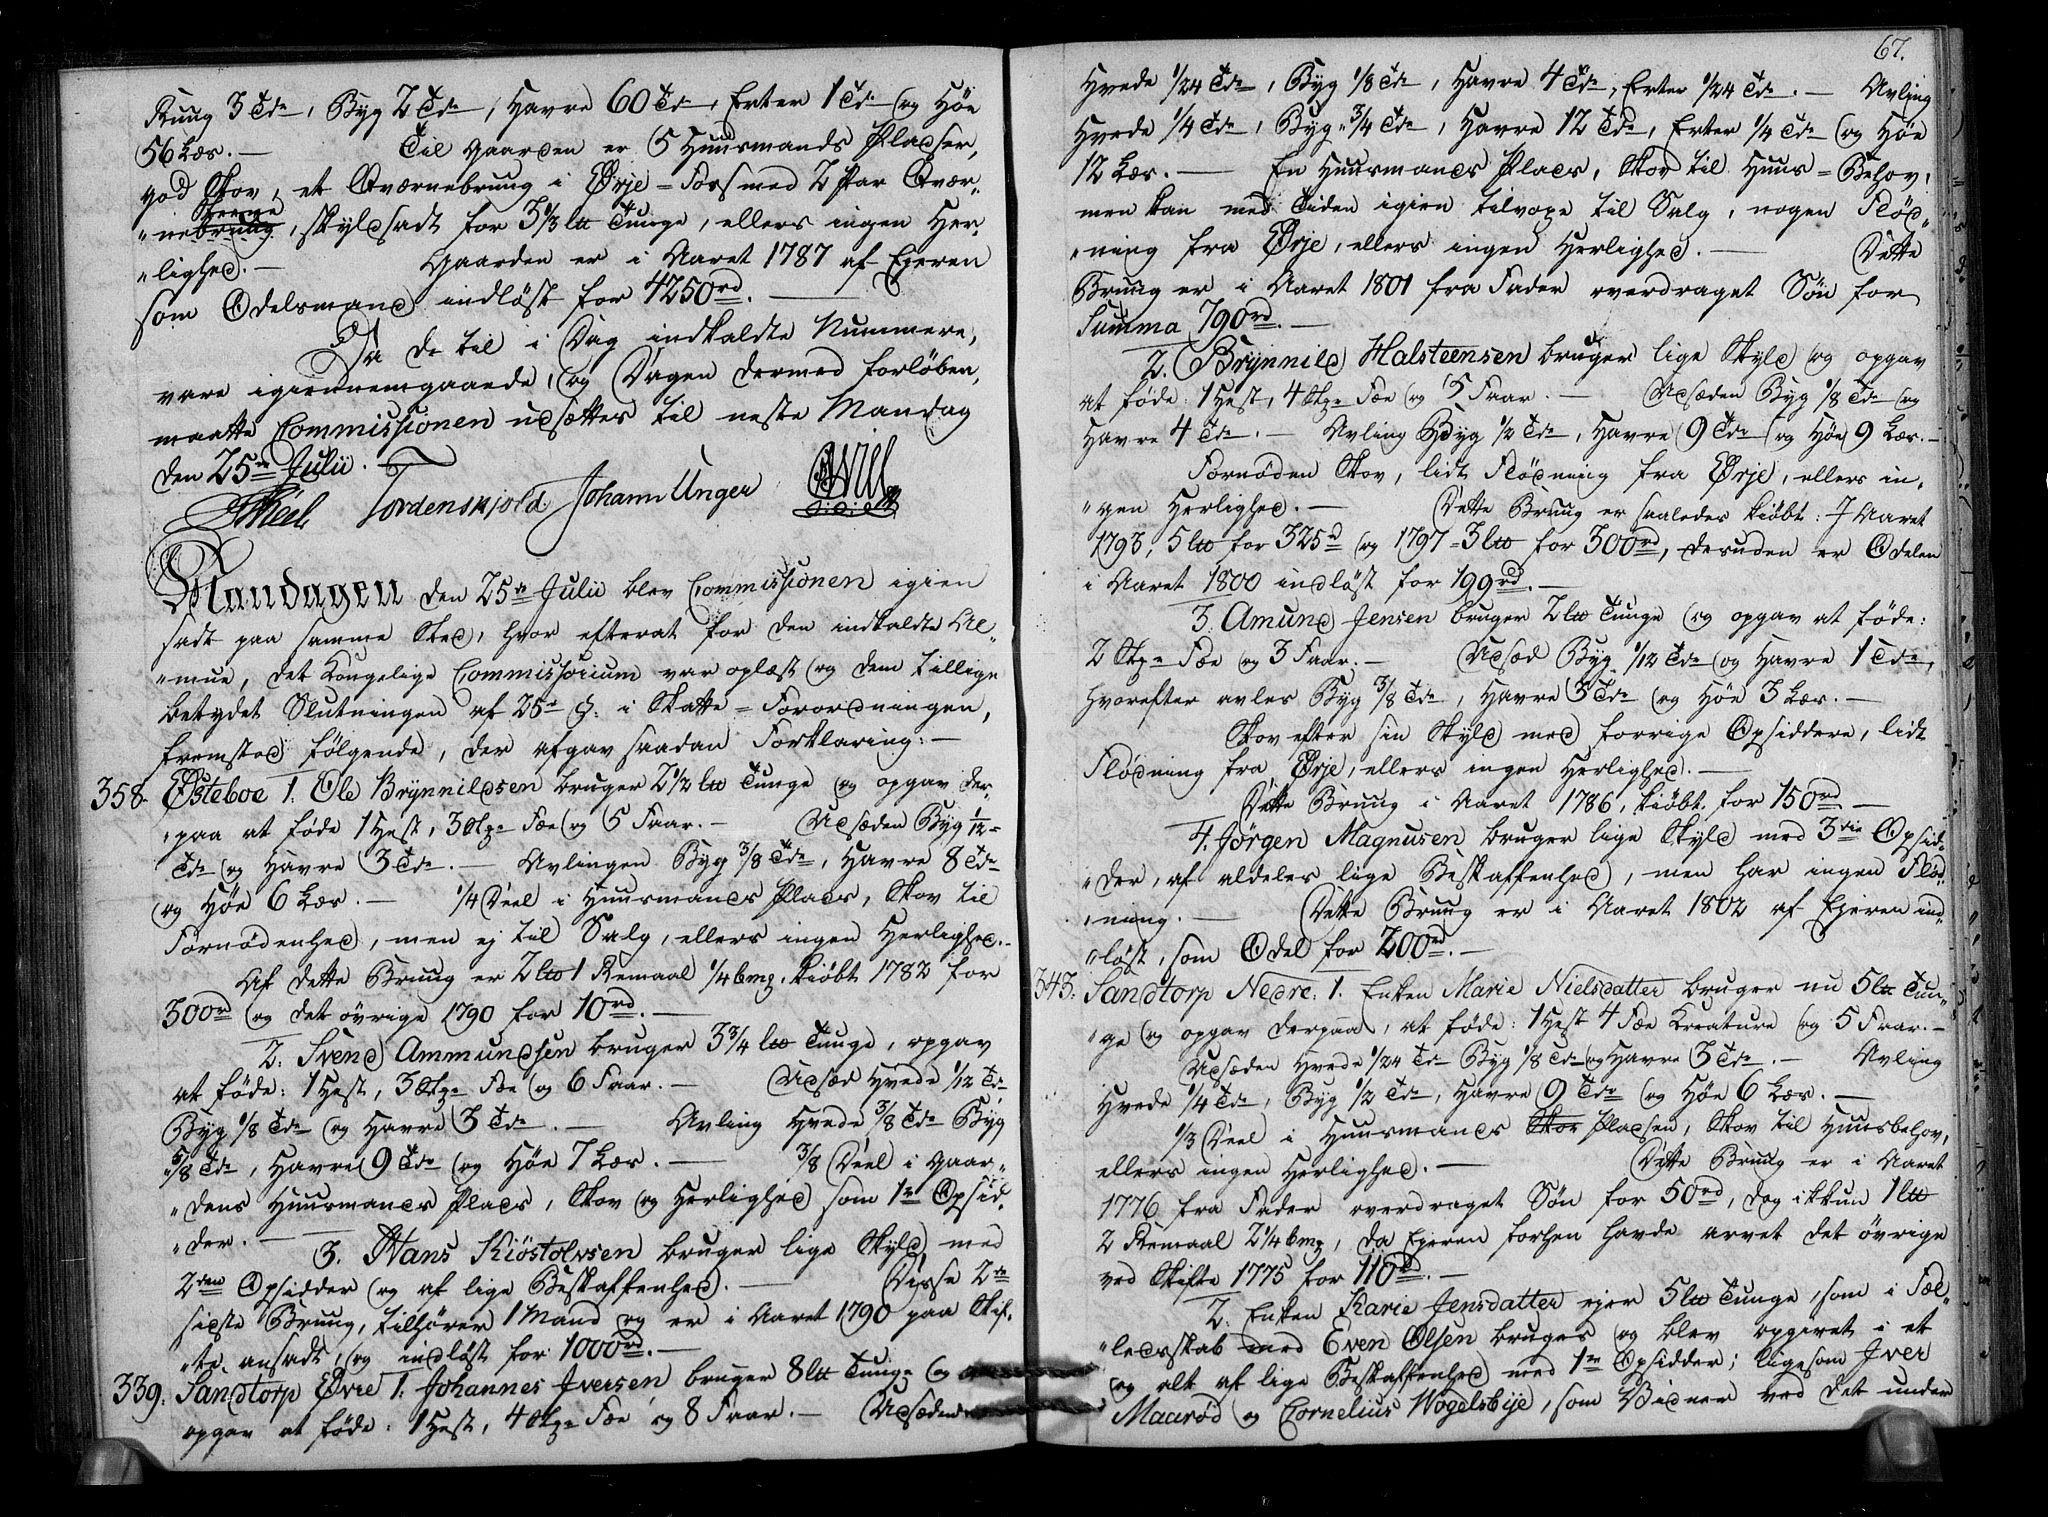 Ruug 3 Tdr, Byg 2 Tdr, Havre 60 Tdr, Erter 1 Td og Höe
56 Læs. — Til Gaarden er 5 Huusmands Pladser,
god Skov, et Qværnebruug i Ørje-Fors med 2 Par Qvær-
"ne Steene, skyldsadt for 3 1/3 l℔ Tunge, ellers ingen Her-
"lighed. — Gaarden er i Aaret 1787 af Ejeren
som Odelsmand indløst for 4250 rd. —
Da de til i Dag indkaldte Nummere,
vare igiennemgaaede, og Dagen dermed forløben,
maatte Commissionen udsættes til neste Mandag
den 25de Julii. —
Tordenskjold. Johann Unger Wiel
Mandagen den 25de Julii blev Commissionen igien
sadt paa samme Sted, hvor efterat for den indkaldte Al-
"mue, det Kongelige Commissorium var oplæst og dem tillige
betydet Slutningen af 25de §. i Skatte-Forordningen,
fremstod følgende, der afgav saadan Forklaring: —
358. Østeboe 1. Ole Brynnildsen bruger 2 1/2 l℔ Tunge og opgav der-
"paa at føde 1 Hest, 3 Stkr Fæe og 5 Faar. — Udsæden Byg 1/12
Tdr og Havre 3 Tdr. — Avlingen Byg 3/8 Tdr, Havre 8 Tdr
og Höe 6 Læs. — 1/4 Deel i Huusmands Plads, Skov til
Fornødenhed, men ej til Salg, ellers ingen Herlighed. —
Af dette Bruug er 2 l℔ 1 Remaal 1/4 bmg. kiøbt 1782 for
300 rd og det øvrige 1790 for 10 rd. —
2. Svend Ammundsen bruger 3 3/4 l℔ Tunge, opgav
at føde: 1 Hest, 3 Stkr Fæe og 6 Faar. — Udsæd Hvede 1/12 Tdr
Byg 1/8 Tdr og Havre 3 Tdr. — Avling Hvede 3/8 Tdr Byg
5/8 Tdr, Havre 9 Tdr og Höe 7 Læs. — 3/8 Deel i Gaar-
"dens Huusmands Plads, Skov og Herlighed som 1re Opsid-
"der. —
3. Hans Kiöstolvsen bruger lige Skyld med
2den Opsidder og af lige Beskaffenhed. — Disse 2de
sidste Bruug, tilhører 1 Mand og er i Aaret 1790 paa Skif-
"te ansadt og indløst for 1000 rd. —
339. Sandtorp Øvre 1. Johannes Iversen bruger 8 l℔ Tunge og
opgav at føde: 1 Hest, 4 Stkr Fæe og 8 Faar. — Udsæden
67.
Hvede 1/24 Tdr, Byg 1/8 Tdr, Havre 4 Tdr, Erter 1/24 Tdr. — Avling
Hvede 1/4 Tdr, Byg 3/4 Tdr, Havre 12 Tdr, Erter 1/4 Tdr og Höe
12 Læs. — En Huusmands Plads, Skov til Huus-Behov,
men kan med Tiden igien tilvoxe til Salg, nogen Flød-
"ning fra Ørje, ellers ingen Herlighed. — Dette
Bruug er i Aaret 1801 fra Fader overdraget Søn for
Summa 790 rd. —
2. Brynnild Halsteensen bruger lige Skyld og opgav
at føde: 1 Hest, 4 Stkr Fæe og 5 Faar. — Udsæden Byg 1/8 Tdr og
Havre 4 Tdr. — Avling Byg 1/2 Tdr, Havre 9 Tdr og Höe 9 Læs. —
Fornøden Skov, lidt Flødning fra Ørje, ellers in-
"gen Herlighed. — Dette Bruug er saaledes kiøbt: I Aaret
1793, 5 l℔ for 325 rd og 1797 - 3 l℔ for 300 rd, desuden er Odelen
i Aaret 1800 indløst for 199 rd. —
3. Amund Jensen bruger 2 l℔ Tunge og opgav at føde:
2 Stkr Fæe og 3 Faar. — Udsæd Byg 1/12 Tdr og Havre 1 Tdr,
hvorefter avles Byg 3/8 Tdr, Havre 3 Tdr og Höe 3 Læs. —
Skov efter sin Skyld med forrige Opsiddere, lidt
Flødning fra Ørje, ellers ingen Herlighed. —
Dette Bruug i Aaret 1786, kiøbt for 150 rd —
4. Jørgen Magnusen bruger lige Skyld med 3die Opsid-
"der, af aldeles lige Beskaffenhed, men har ingen Flød-
"ning. — Dette Bruug er i Aaret 1802 af Ejeren ind-
"løst, som Odel for 200 rd. —
343. Sandtorp Nedre. 1. Enken Marie Nielsdatter bruger nu 5 l℔ Tun-
"ge og opgav derpaa, at føde: 1 Hest 4 Fæe Kreature og 5 Faar. —
Udsæden Hvede 1/24 Tdr Byg 1/8 Tdr og Havre 3 Tdr. — Avling
Hvede 1/4 Tdr, Byg 1/2 Tdr, Havre 9 Tdr og Höe 6 Læs. —
1/3 Deel i Huusmands Skov Pladsen, Skov til Huusbehov,
ellers ingen Herlighed. — Dette Bruug er i Aaret
1776 fra Fader overdraget Søn for 50 rd, dog ikkun 1 l℔
2 Remaal 2 1/4 bmg, da Ejeren forhen havde arvet det øvrige
ved Skifte 1775 for 110 rd. —
2. Enken Karie Jensdatter ejer 5 l℔ Tunge, som i Fæl-
"ledsskab med Even Olsen bruges og blev opgivet i et
og alt af lige Beskaffenhed med 1re Opsidder; ligesom Iver
Maarød og Cornelius Wogelsbye, som Vidner ved det under